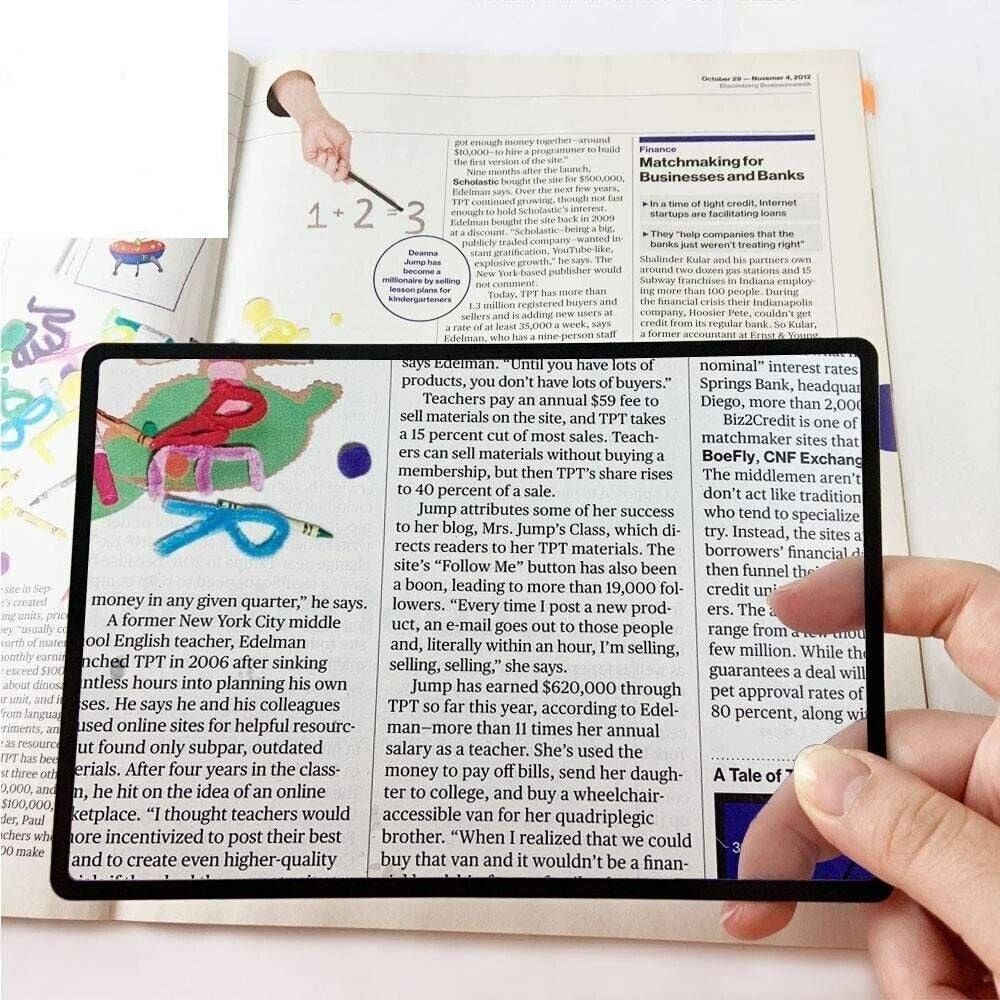 October 29 — Novemer 4, 2012
Bloomberg Businessweek
1+2=3
Deanna
Jump has
become a
millionaire by selling
lesson plans for
kindergarteners
got enough money together—around
$10,000—to hire a programmer to build
the first version of the site."
Nine months after the launch,
Scholastic bought the site for $500,000,
Edelman says. Over the next few years,
TPT continued growing, though not fast
enough to hold Scholastic's interest.
Edelman bought the site back in 2009
at a discount. "Scholastic—being a big,
publicly traded company—wanted in-
stant gratification, YouTube-like,
explosive growth," he says. The
New York-based publisher would
not comment.
Today, TPT has more than
1.3 million registered buyers and
sellers and is adding new users at
a rate of at least 35,000 a week, says
Edelman, who has a nine-person staff
Finance
Matchmaking for
Businesses and Banks
▸ In a time of tight credit, Internet
startups are facilitating loans
▸ They "help companies that the
banks just weren't treating right"
Shalinder Kular and his partners own
around two dozen gas stations and 15
Subway franchises in Indiana employ-
ing more than 100 people. During
the financial crisis their Indianapolis
company, Hoosier Pete, couldn't get
credit from its regular bank. So Kular,
a former accountant at Ernst & Young
site in Sep-
created
ing units,
"usually
worth of
monthly
exceed $100
about
unit, and
from
and
as
TPT has
three
0,000, and
$100,000,
Paul
00 make
money in any given quarter," he says.
A former New York City middle
ool English teacher, Edelman
nched TPT in 2006 after sinking
ntless hours into planning his own
ses. He says he and his colleagues
used online sites for helpful resourc-
ut found only subpar, outdated
erials. After four years in the class-
m, he hit on the idea of an online
ketplace. "I thought teachers would
ore incentivized to post their best
and to create even higher-quality
says Edelman. "Until you have lots of
products, you don't have lots of buyers."
Teachers pay an annual $59 fee to
sell materials on the site, and TPT takes
a 15 percent cut of most sales. Teach-
ers can sell materials without buying a
membership, but then TPT's share rises
to 40 percent of a sale.
Jump attributes some of her success
to her blog, Mrs. Jump's Class, which di-
rects readers to her TPT materials. The
site's "Follow Me" button has also been
a boon, leading to more than 19,000 fol-
lowers. "Every time I post a new prod-
uct, an e-mail goes out to those people
and, literally within an hour, I'm selling,
selling, selling," she says.
Jump has earned $620,000 through
TPT so far this year, according to Edel-
man—more than 11 times her annual
salary as a teacher. She's used the
money to pay off bills, send her daugh-
ter to college, and buy a wheelchair-
accessible van for her quadriplegic
brother. "When I realized that we could
buy that van and it wouldn't be a finan-
nominal" interest rates
Springs Bank, headquar
Diego, more than 2,000
Biz2Credit is one of
matchmaker sites that
BoeFly, CNF Exchang
The middlemen aren't
don't act like tradition
who tend to specialize
try. Instead, the sites a
borrowers' financial
then funnel
credit
ers. The
range from a few
few million. While the
guarantees a deal will
pet approval rates of
80 percent, along
A Tale of
3